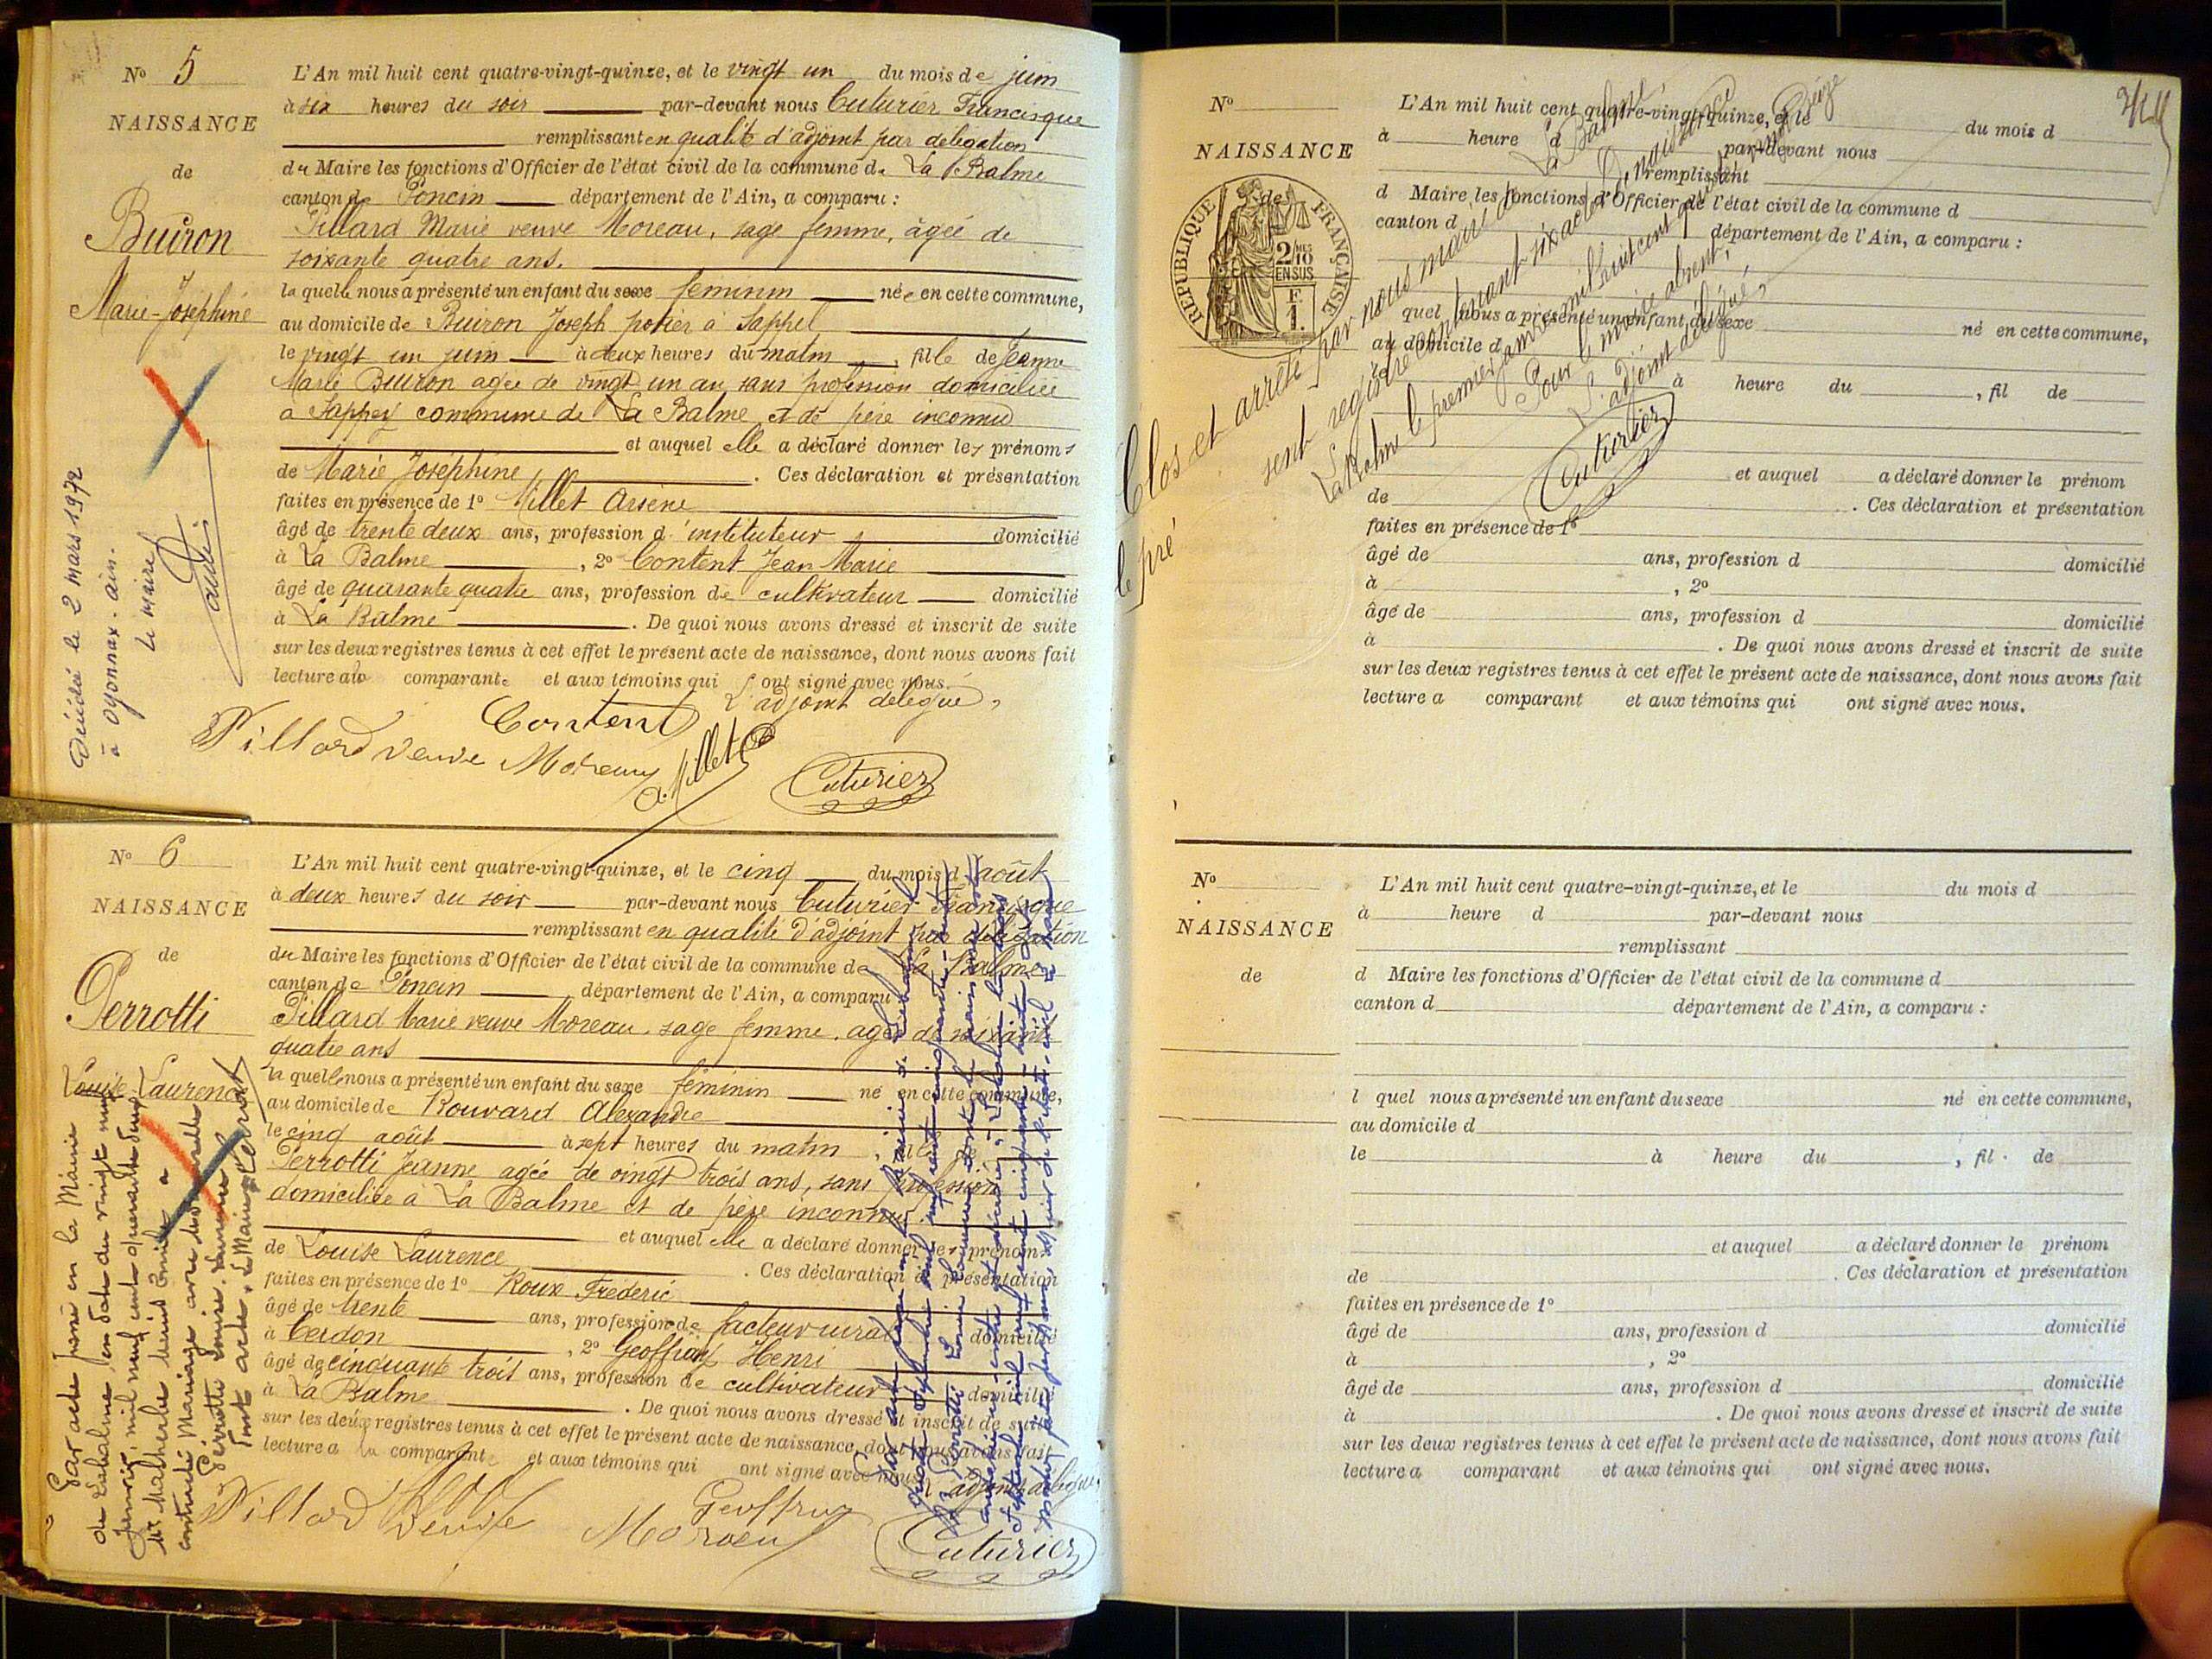 N° 5
NAISSANCE
de
Buiron
Marie-Joséphine
Décédée le 2 mars 1972
à Oyonnax. ain.
le maire
L'An mil huit cent quatre-vingt-quinze, et le vingt un du mois de juin
à six heures du soir par-devant nous Cuturier Francisque
remplissant en qualité d'adjoint par délégation
du Maire les fonctions d'Officier de l'état civil de la commune de La Balme
canton de Poncin département de l'Ain, a comparu :
Pillard Marie veuve Moreau, sage femme, âgée de
soixante quatre ans.
laquelle nous a présenté un enfant du sexe féminin née en cette commune,
au domicile de Buiron Joseph potier à Sappel
le vingt un juin à deux heures du matin, fille de Jeanne
Marie Buiron agée de vingt un an, sans profession domiciliée
à Sappey commune de La Balme et de père inconnu
et auquel elle a déclaré donner les prénoms
de Marie Joséphine. Ces déclaration et présentation
faites en présence de 1° Millet Arsène
âgé de trente deux ans, profession d'instituteur domicilié
à La Balme, 2° Content Jean Marie
âgé de quarante quatre ans, profession de cultivateur domicilié
à La Balme. De quoi nous avons dressé et inscrit de suite
sur les deux registres tenus à cet effet le présent acte de naissance, dont nous avons fait
lecture au comparante et aux témoins qui ont signé avec nous.
L'adjoint délégué,
Content
Pillard veuve Moreau A. Millet
Cuturier
N° 6
NAISSANCE
de
Perrotti
Louise Laurence
Par acte passé en la Mairie
de Labalme, en date du vingt neuf
janvier, mil neuf cent quarante deux
Mr Malherbe Emile a
contracté Mariage avec demoiselle
Perrotti Louise Laurence
Dont acte, Le Maire
L'An mil huit cent quatre-vingt-quinze, et le cinq du mois d'août
à deux heures du soir par-devant nous Cuturier Francisque
remplissant en qualité d'adjoint par délégation
du Maire les fonctions d'Officier de l'état civil de la commune de La Balme
canton de Poncin département de l'Ain, a comparu
Pillard Marie veuve Moreau, sage femme, agée de soixante
quatre ans
laquelle nous a présenté un enfant du sexe féminin né en cette commune,
au domicile de Rouvard Alexandre
le cinq août à sept heures du matin, fille de
Perrotti Jeanne agée de vingt trois ans, sans profession
domiciliée à La Balme et de père inconnu.
et auquel elle a déclaré donner les prénoms
de Louise Laurence. Ces déclaration et présentation
faites en présence de 1° Roux Frédéric
âgé de trente ans, profession de facteur rural domicilié
à Cerdon, 2° Geoffray Henri
âgé de cinquante trois ans, profession de cultivateur domicilié
à La Balme. De quoi nous avons dressé et inscrit de suite
sur les deux registres tenus à cet effet le présent acte de naissance, dont nous avons fait
lecture a la comparante et aux témoins qui ont signé avec nous. L'adjoint délégué,
Pillard veuve Moreau
Geoffray
Cuturier
N°
NAISSANCE
de
RÉPUBLIQUE FRANÇAISE
2/10 EN SUS
F.
1.
L'An mil huit cent quatre-vingt-quinze, et le du mois d
à heure d par-devant nous
remplissant
d Maire les fonctions d'Officier de l'état civil de la commune d
canton d département de l'Ain, a comparu :
quel nous a présenté un enfant du sexe né en cette commune,
au domicile d
à heure du , fil de
et auquel a déclaré donner le prénom
de . Ces déclaration et présentation
faites en présence de 1°
âgé de ans, profession d domicilié
à , 2°
âgé de ans, profession d domicilié
à . De quoi nous avons dressé et inscrit de suite
sur les deux registres tenus à cet effet le présent acte de naissance, dont nous avons fait
lecture a comparant et aux témoins qui ont signé avec nous.
Clos et arrêté par nous maire de La Balme
le présent registre contenant six actes de naissance
La Balme le premier janvier mil huit cent quatre vingt seize
Pour le maire absent,
L'adjoint délégué,
Cuturier
N°
NAISSANCE
de
L'An mil huit cent quatre-vingt-quinze, et le du mois d
à heure d par-devant nous
remplissant
d Maire les fonctions d'Officier de l'état civil de la commune d
canton d département de l'Ain, a comparu :
l quel nous a présenté un enfant du sexe né en cette commune,
au domicile d
le à heure du , fil de
et auquel a déclaré donner le prénom
de . Ces déclaration et présentation
faites en présence de 1°
âgé de ans, profession d domicilié
à , 2°
âgé de ans, profession d domicilié
à . De quoi nous avons dressé et inscrit de suite
sur les deux registres tenus à cet effet le présent acte de naissance, dont nous avons fait
lecture a comparant et aux témoins qui ont signé avec nous.